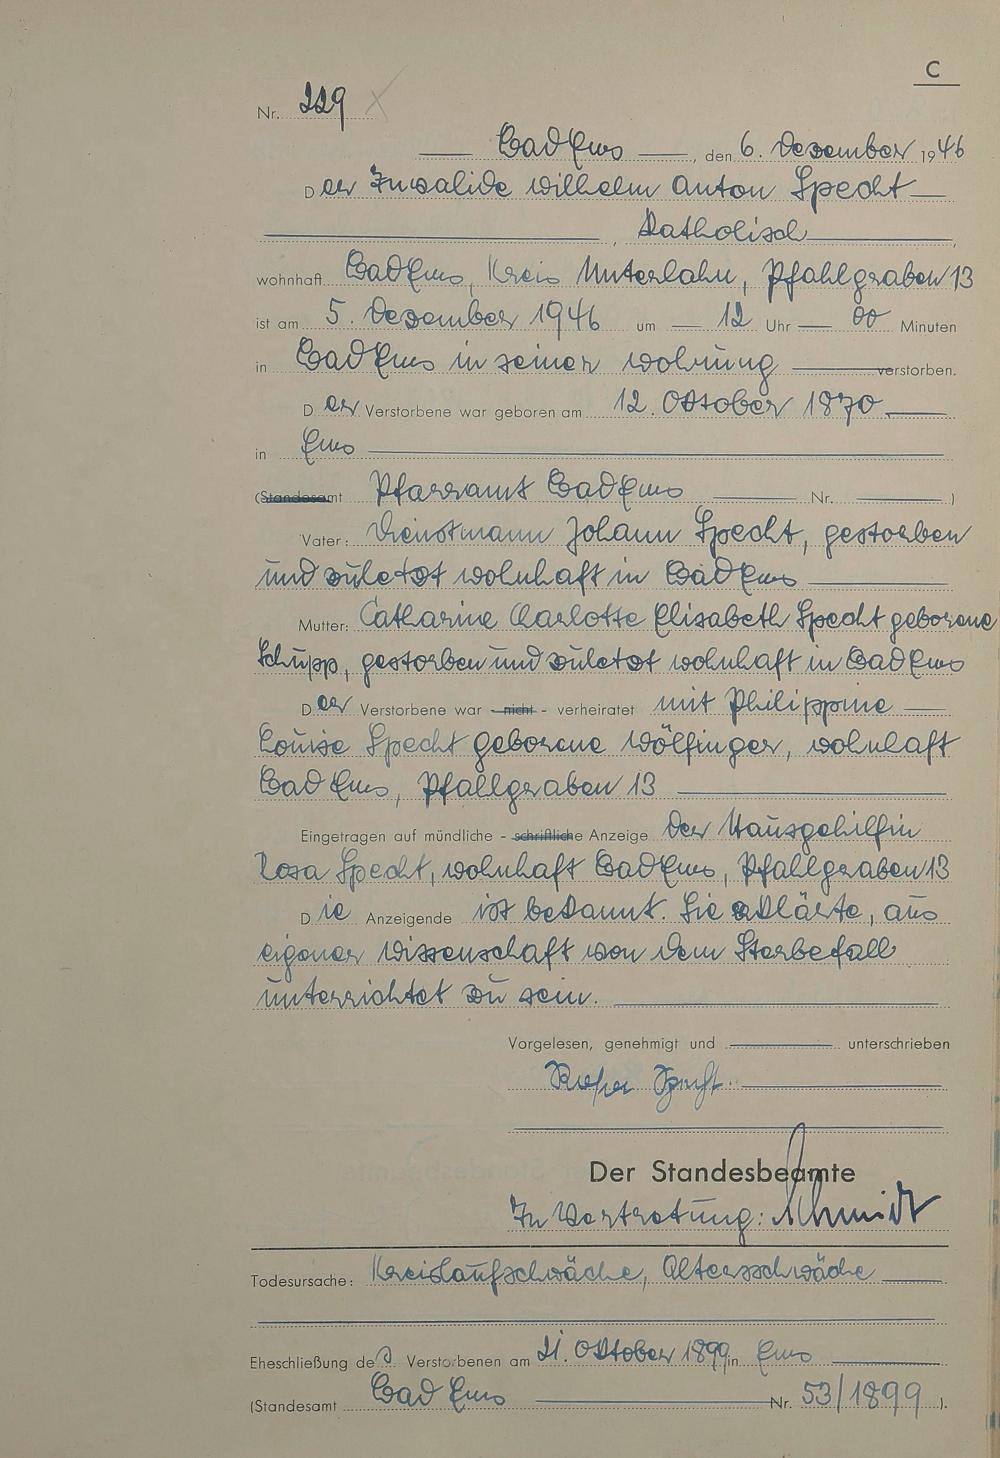 C
Nr. 229
Bad Ems, den 6. Dezember 1946
Der Invalide Wilhelm Anton Specht
, Katholisch,
wohnhaft Bad Ems, Kreis Unterlahn, Pfahlgraben 13
ist am 5. Dezember 1946 um 12 Uhr 00 Minuten
in Bad Ems in seiner Wohnung verstorben.
Der Verstorbene war geboren am 12. Oktober 1870
in Ems
(Standesamt Pfarramt Bad Ems Nr. )
Vater: Dienstmann Johann Specht, gestorben
und zuletzt wohnhaft in Bad Ems
Mutter: Catharine Charlotte Elisabeth Specht geborene
Schupp, gestorben und zuletzt wohnhaft in Bad Ems
Der Verstorbene war - nicht - verheiratet mit Philippine
Louise Specht geborene Wölfinger, wohnhaft
Bad Ems, Pfallgraben 13
Eingetragen auf mündliche - schriftliche Anzeige der Hausgehilfin
Rosa Specht, wohnhaft Bad Ems, Pfallgraben 13
Die Anzeigende ist bekannt. Sie erklärte, aus
eigener Wissenschaft von dem Sterbefall
unterrichtet zu sein.
Vorgelesen, genehmigt und unterschrieben
Rosa Specht.
Der Standesbeamte
In Vertretung: Schmidt
Todesursache: Kreislaufschwäche, Altersschwäche
Eheschließung des Verstorbenen am 21. Oktober 1899 in Ems
(Standesamt Bad Ems Nr. 53/1899 ).